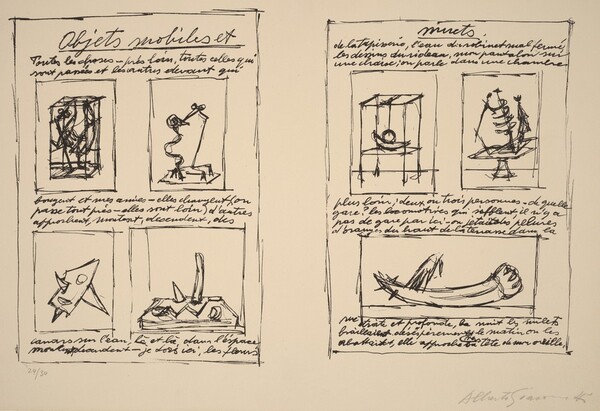 Objets mobiles et
Toutes les choses – près, loin, toutes celles qui
sont passées et les autres devant qui
bougent et mes amies – elles changent (on
passe tout près – elles sont loin) d'autres
approchent, montent, descendent, des
canards sur l'eau, là et là, dans l'espace
montent, descendent – je dors ici, les fleurs
20/30
muets
de la tapisserie, l'eau du robinet mal fermé,
les dessins du rideau, mon pantalon sur
une chaise, on parle dans une chambre
plus loin; deux ou trois personnes – de quelle
gare? les locomotives qui sifflent, il n'y a
pas de gare par ici – on jetait des pelures
d'oranges du haut de la terrasse dans la
rue étroite et profonde – la nuit les mulets
braillaient désespérément, le matin on les
abattait, elle approche sa tête de mon oreille,
Alberto Giacometti